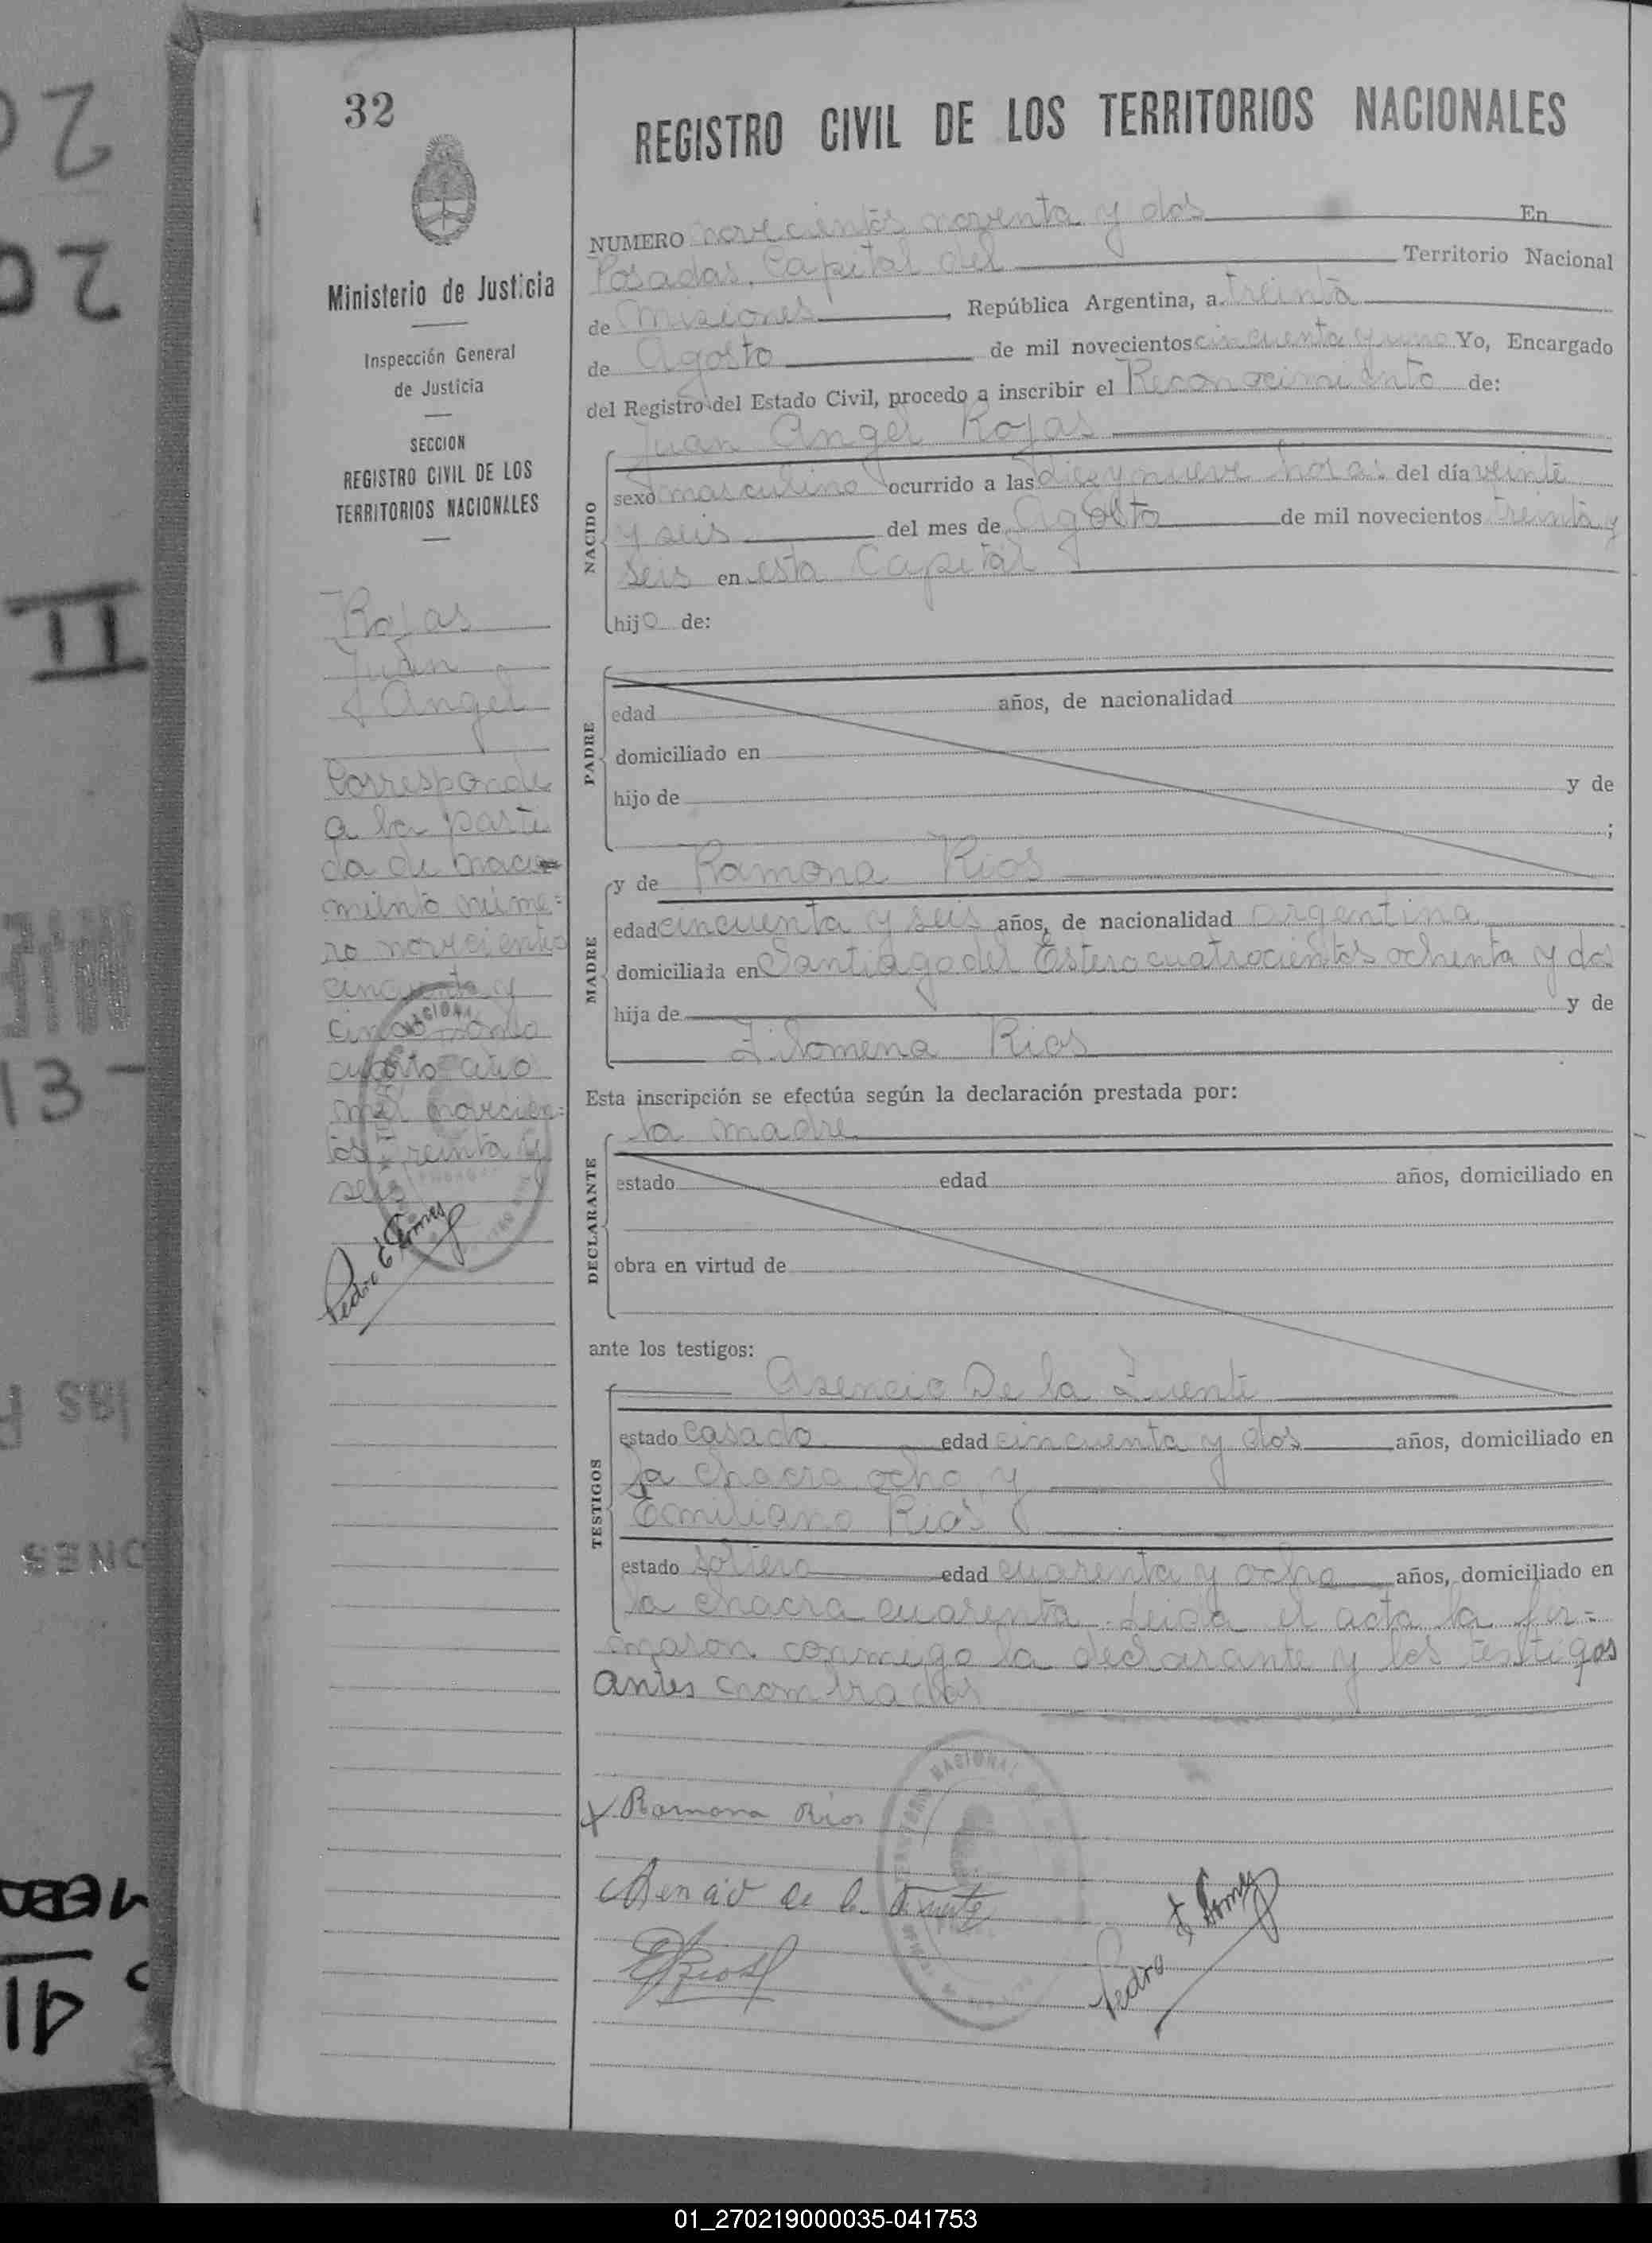 32
Ministerio de Justicia
Inspección General
de Justicia
SECCION
REGISTRO CIVIL DE LOS
TERRITORIOS NACIONALES
Rojas
Juan
Angel
Corresponde
a la parti
da de naci
miento núme=
ro novecientos
cincuenta y
cinco tomo
cuarto año
mil novecien=
tos treinta y
seis
Pedro E Gomez
REGISTRO CIVIL DE LOS TERRITORIOS NACIONALES
NUMERO novecientos noventa y dos En
Posadas, Capital del Territorio Nacional
de Misiones, República Argentina, a treinta
de Agosto de mil novecientos cincuenta y uno Yo, Encargado
del Registro del Estado Civil, procedo a inscribir el Reconocimiento de:
Juan Angel Rojas
NACIDO
sexo masculino ocurrido a las diez y nueve horas del día veinte
y seis del mes de Agosto de mil novecientos treinta y
seis en esta Capital
hijo de:
PADRE
edad años, de nacionalidad
domiciliado en
hijo de y de
;
MADRE
y de Ramona Rios
edad cincuenta y seis años, de nacionalidad argentina
domiciliada en Santiago del Estero cuatrocientos ochenta y dos
hija de y de
Filomena Rios
Esta inscripción se efectúa según la declaración prestada por:
la madre
DECLARANTE
estado edad años, domiciliado en
obra en virtud de
ante los testigos:
Asencio De la Fuente
TESTIGOS
estado casado edad cincuenta y dos años, domiciliado en
la chacra ocho y
Emiliano Rios
estado soltero edad cuarenta y ocho años, domiciliado en
la chacra cuarenta. Leida el acta la fir=
maron conmigo la declarante y los testigos
antes nombrados
x Ramona Rios
Asencio de la Fuente
E Rios
Pedro E Gomez
01_270219000035-041753